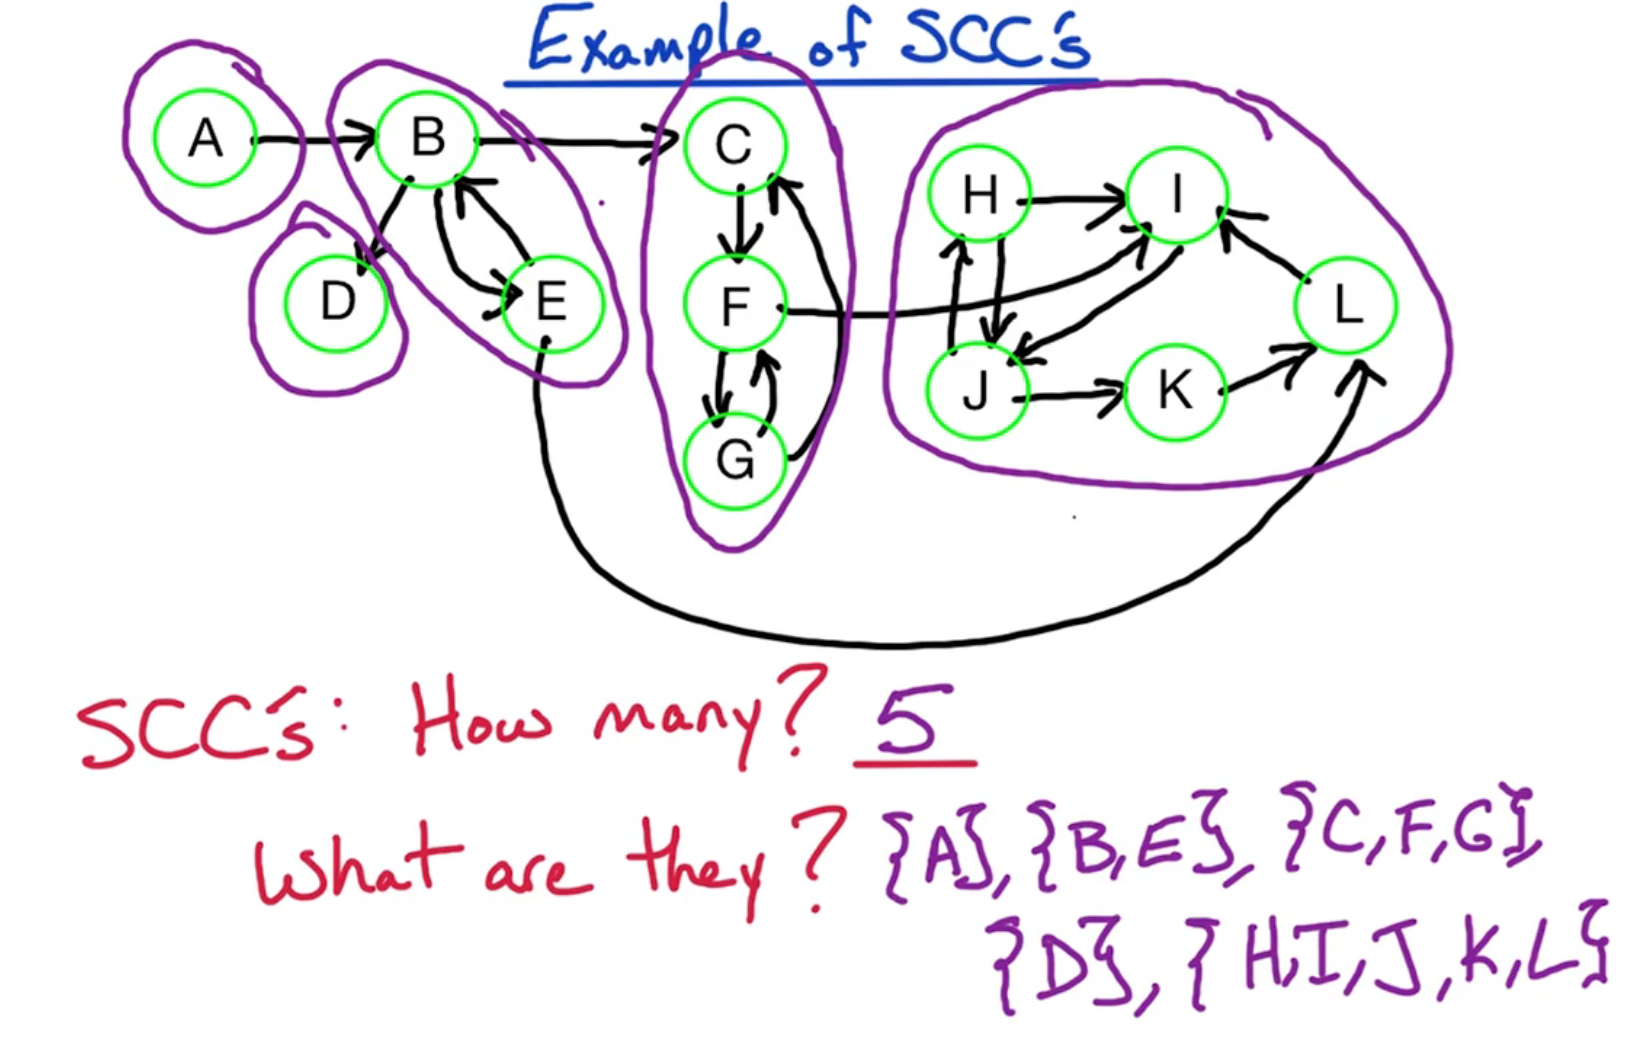 Example of SCC's
A B C H I
D E F J K L
G
SCC's: How many? 5
What are they? {A}, {B,E}, {C,F,G},
{D}, {H,I,J,K,L}